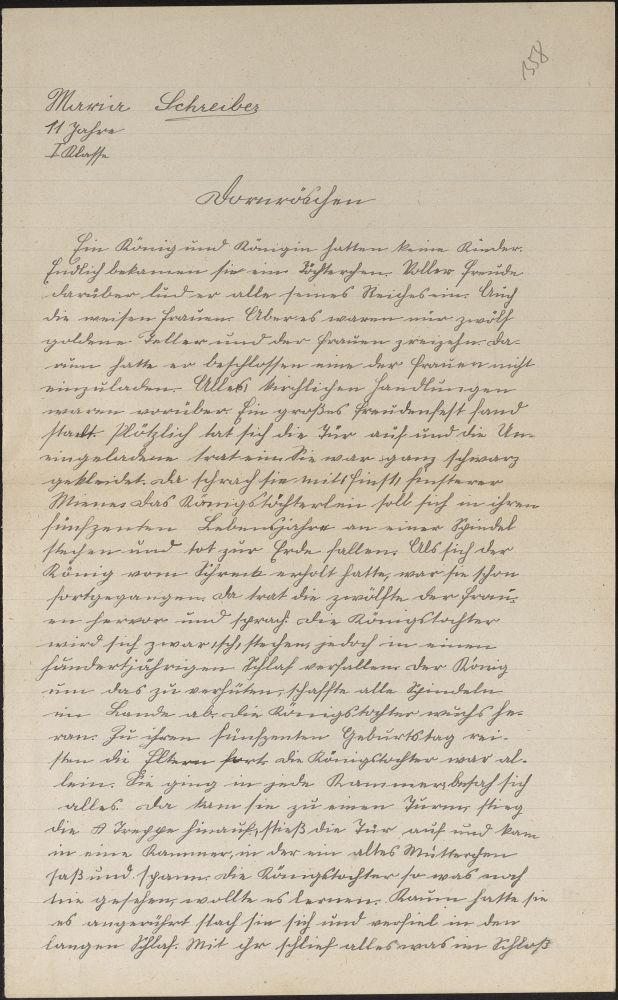 158
Maria Schreiber
11 Jahre
I Klasse
Dornröschen
Ein König und Königin hatten keine Kinder.
Endlich bekamen sie ein Töchterchen. Voller Freude
darüber lud er alle seines Reiches ein. Auch
die weisen Frauen. Aber es waren nur zwölf
goldene Teller und der Frauen dreizehn. Da-
rum hatte er beschlossen eine der Frauen nicht
einzuladen. Alles kirchlichen Handlungen
waren vorüber. Ein großes Freudenfest fand
statt. Plötzlich tat sich die Tür auf und die Un-
eingeladene trat ein. Sie war ganz schwarz
gekleidet. Da sprach sie mit finsterer
Miene: Das Königstöchterlein soll sich in ihren
fünfzenten Lebensjahre an einer Spindel
stechen und tot zur Erde fallen. Als sich der
König vom Schreck erholt hatte, war sie schon
fortgegangen. Da trat die zwölfte der Frau-
en hervor und sprach: Die Königstochter
wird sich zwar stechen, jedoch in einen
hundertjährigen Schlaf verfallen. Der König
um das zu verhüten, schaffte alle Spindeln
im Lande ab. Die Königstochter wuchs he-
ran. Zu ihren fünfzenten Geburtstag rei-
sten die Eltern fort. Die Königstochter war al-
lein. Sie ging in jede Kammer, besah sich
alles. Da kam sie zu einen Turm, stieg
die Treppe hinauf, stieß die Tür auf und kam
in eine Kammer, in der ein altes Mütterchen
saß und spann. Die Königstochter so was noch
nie gesehen, wollte es lernen. Kaum hatte sie
es angerührt stach sie sich und verfiel in den
langen Schlaf. Mit ihr schlief alles was im Schloß